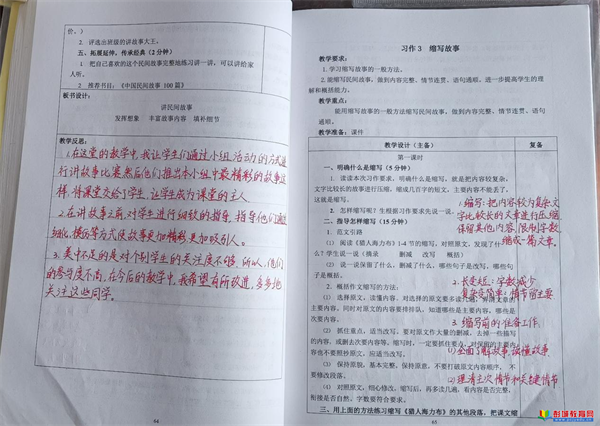 价。）
2. 评选出班级的讲故事大王。
五、拓展延伸，传承经典（2 分钟）
1. 把自己喜欢的这个民间故事完整地练习讲一讲，可以讲给家
人听。
2. 推荐书目：《中国民间故事 100 篇》
板书设计：
讲民间故事
发挥想象 丰富故事内容 填补细节
教学反思：
1.在这堂的教学中，我让学生们通过小组活动的方式进
行讲故事比赛然后他们推出本小组中最精彩的故事这
样，将课堂交给了学生，让学生成为课堂的主人。
2.在讲故事之前，对学生进行细致的指导，指导他们通过
细化，模仿等方式使故事更加精彩更加吸引人。
3.美中不足的是对个别学生的关注度不够，所以，他们
的参与度不高，在今后的教学中，我希望有所改进，多多地
关注这些同学。
94
习作 3 缩写故事
教学要求：
1. 学习缩写故事的一般方法。
2. 能缩写民间故事，做到内容完整、情节连贯、语句通顺，进一步提高学生的理
解和概括能力。
教学重点：
能用缩写故事的一般方法缩写民间故事，做到内容完整、情节连贯、语句
通顺。
教学准备：课件
教学设计（主备） 复备
第一课时
一、明确什么是缩写（5 分钟）
1. 读读本次习作要求，明确什么是缩写，就是把内容较复杂，
文字比较长的故事进行压缩，缩成几百字的短文，主要内容不能丢了，
这就是缩写。
2. 怎样缩写呢？生根据习作要求先说一说。
二、指导怎样缩写（15 分钟）
1. 范文引路
（1） 阅读《猎人海力布》1-4 节的缩写，对照原文，发现了什
么？学生说一说（摘录 删减 改写 概括）
（2） 说一说保留了什么，删减了什么，哪些句子是改写，哪些句
子是概括。
2. 概括作文缩写的方法：
（1） 选择原文，读懂内容，对选择的原文要多读几遍，弄清文章的
主要内容，同时对原文的内容要排排队，知道哪些是主要内容，哪些是
次要内容。
（2） 抓住重点，适当改写。要对原文作大量的删减，去掉一些描写
的内容，或删去次要内容等。缩写时，一定要抓住要点，对保留的主要内
容也不要照抄原文，应适当改写。
（3） 保持原貌，基本完整，保持原意，不要打破原文内容顺序，不
要修改段落。
（4） 对照原文，细心修改。缩写后，再多读几遍，看内容是否完整，
衔接是否自然，字数要符合要求。
三、用上面的方法练习缩写《猎人海力布》的其他段落，把课文缩
1.缩写：把内容较为复杂文
字比较长的文章进行压缩
保留其他内容，限制字数
缩成一篇文章。
2.长变短：字数减少
复杂变简单：情节留主要
3.缩写前的准备工作
(1)全面了解故事，读懂故事
(2)理清主次情节和关键情节
65
彭湖教育网